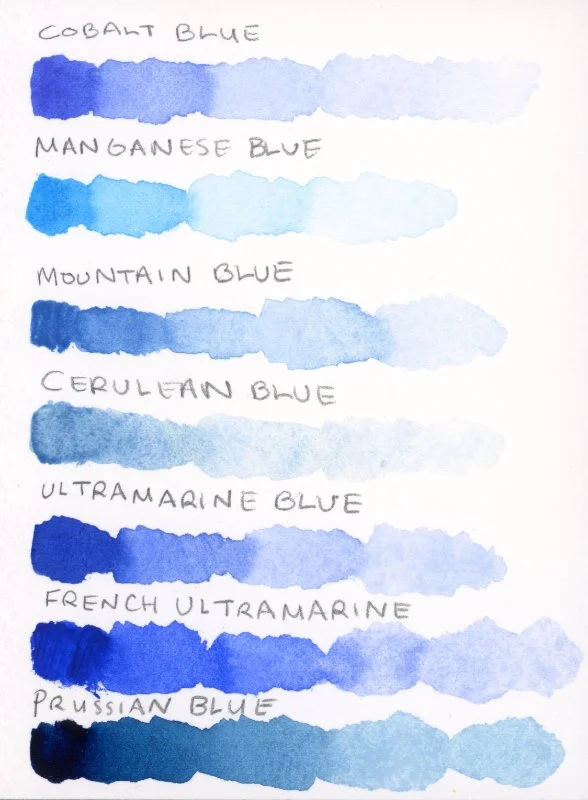 COBALT BLUE
MANGANESE BLUE
MOUNTAIN BLUE
CERULEAN BLUE
ULTRAMARINE BLUE
FRENCH ULTRAMARINE
PRUSSIAN BLUE